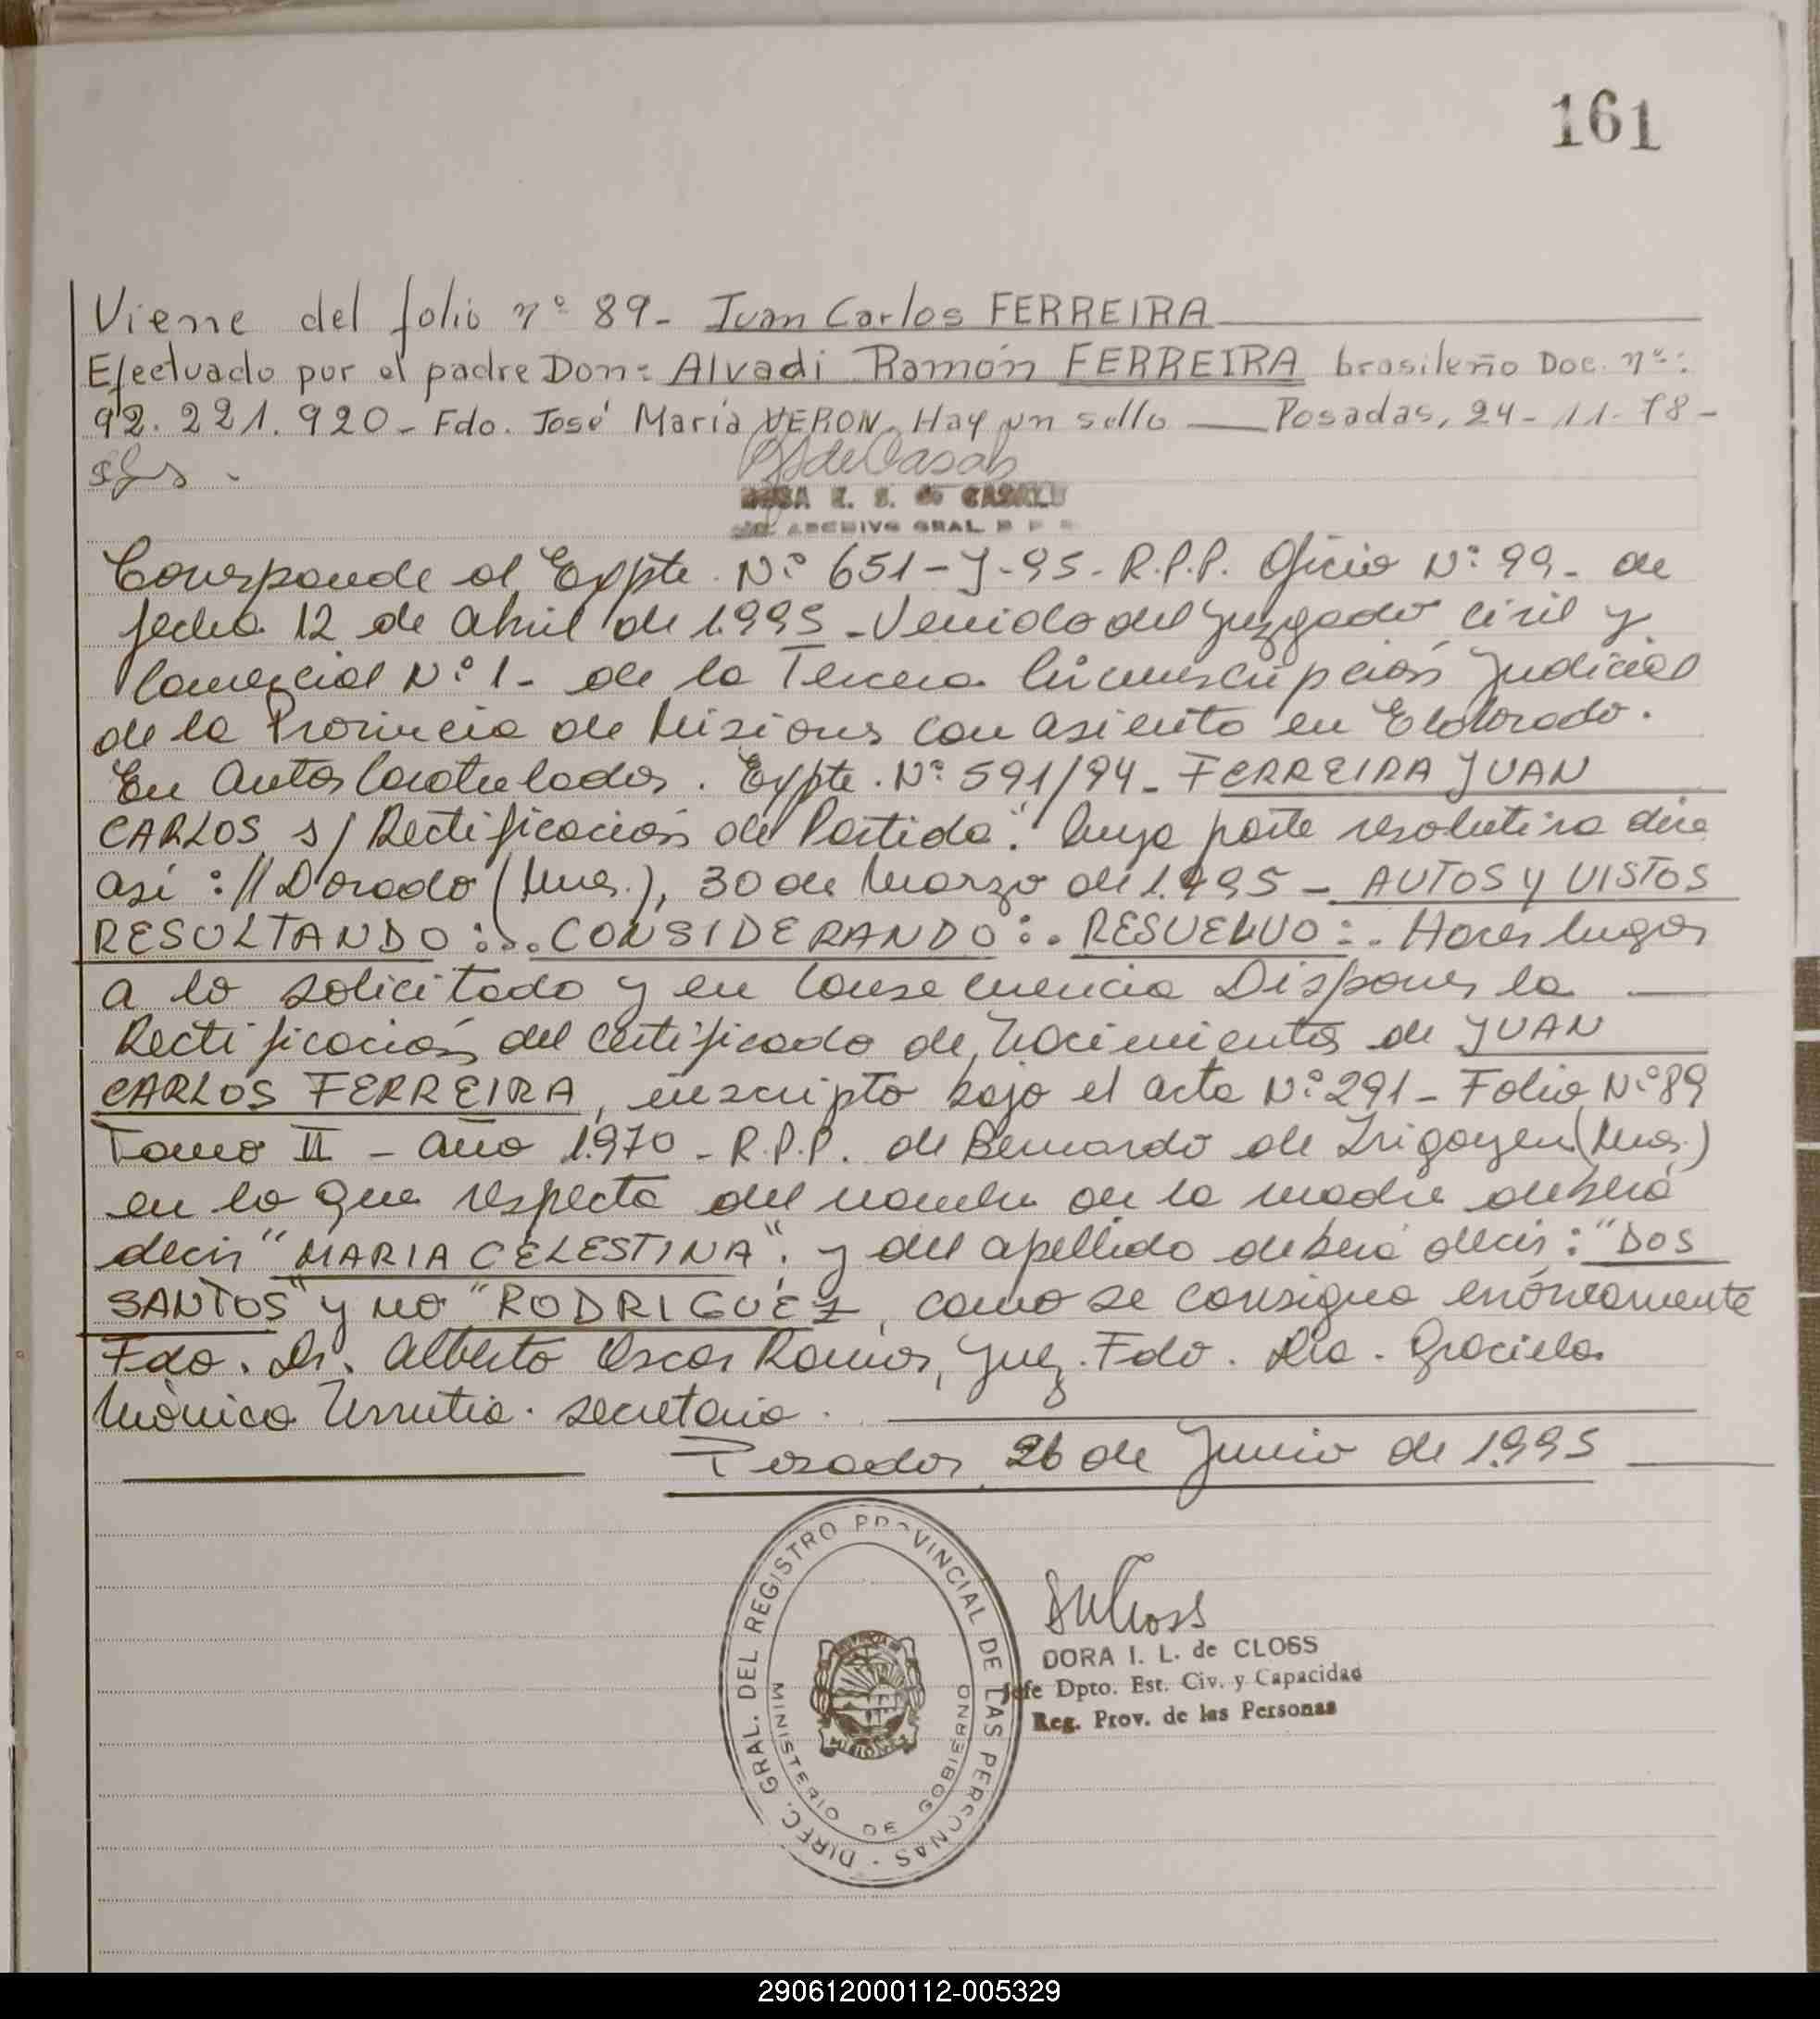 161
Viene del folio nº 89- Juan Carlos FERREIRA
Efectuado por el padre Don: Alvadi Ramón FERREIRA brasileño Doc. nº:
92.221.920- Fdo. José María VERON. Hay un sello — Posadas, 24-11-78-
E. S. de CASALS
ARCHIVO GRAL R P P
Corresponde al Expte. Nº 651-J-95- R.P.P. Oficio Nº 99- de
fecha 12 de Abril de 1.995 - Venido del Juzgado Civil y
Comercial Nº 1- de la Tercera Circunscripción Judicial
de la Provincia de Misiones con asiento en Eldorado.
En Autos Caratulados. Expte. Nº 591/94- FERREIRA JUAN
CARLOS s/ Rectificación de Partida". Cuya parte resolutiva dice
así: // Dorado (Mnes.), 30 de Marzo de 1.995 - AUTOS Y VISTOS
RESULTANDO:.. CONSIDERANDO:. RESUELVO:. Hacer lugar
a lo solicitado y en consecuencia Disponer la
Rectificación del certificado de Nacimientos de JUAN
CARLOS FERREIRA, inscripto bajo el acta Nº 291- Folio Nº 89
Tomo II - Año 1.970 - R.P.P. de Bernardo de Irigoyen (Mnes.)
en lo que respecta del nombre de la madre deberá
decir "MARIA CELESTINA"; y del apellido deberá decir: "DOS
SANTOS" y no "RODRIGUEZ, como se consigna erróneamente
Fdo. Dr. Alberto Oscar Ramos, Juez. Fdo. Dra. Graciela
Mónica Urrutia. secretaria.
Posadas, 26 de Junio de 1.995
DIREC. GRAL. DEL REGISTRO PROVINCIAL DE LAS PERSONAS
MINISTERIO DE GOBIERNO
MISIONES
DORA I. L. de CLOSS
Jefe Dpto. Est. Civ. y Capacidad
Reg. Prov. de las Personas
290612000112-005329